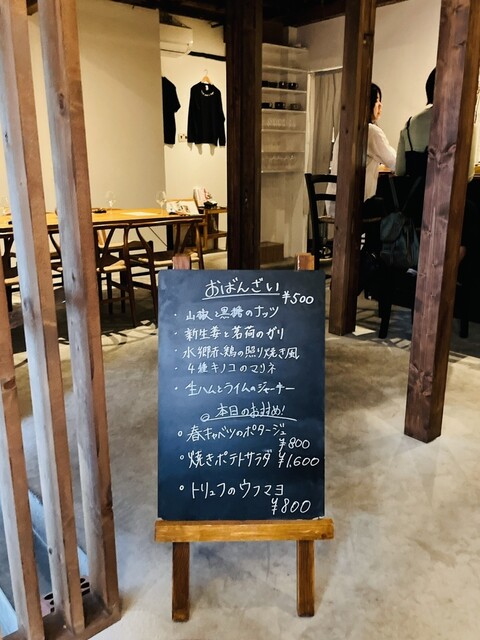 おばんざい
¥500
・山椒と黒糖のナッツ
・新生姜と茗荷のガリ
・水郷赤鶏の照り焼き風
・4種キノコのマリネ
・生ハムとライムのジャーキー
本日のおすすめ!
・春キャベツのポタージュ
¥800
・焼きポテトサラダ ¥1,600
・トリュフのウフマヨ
¥800